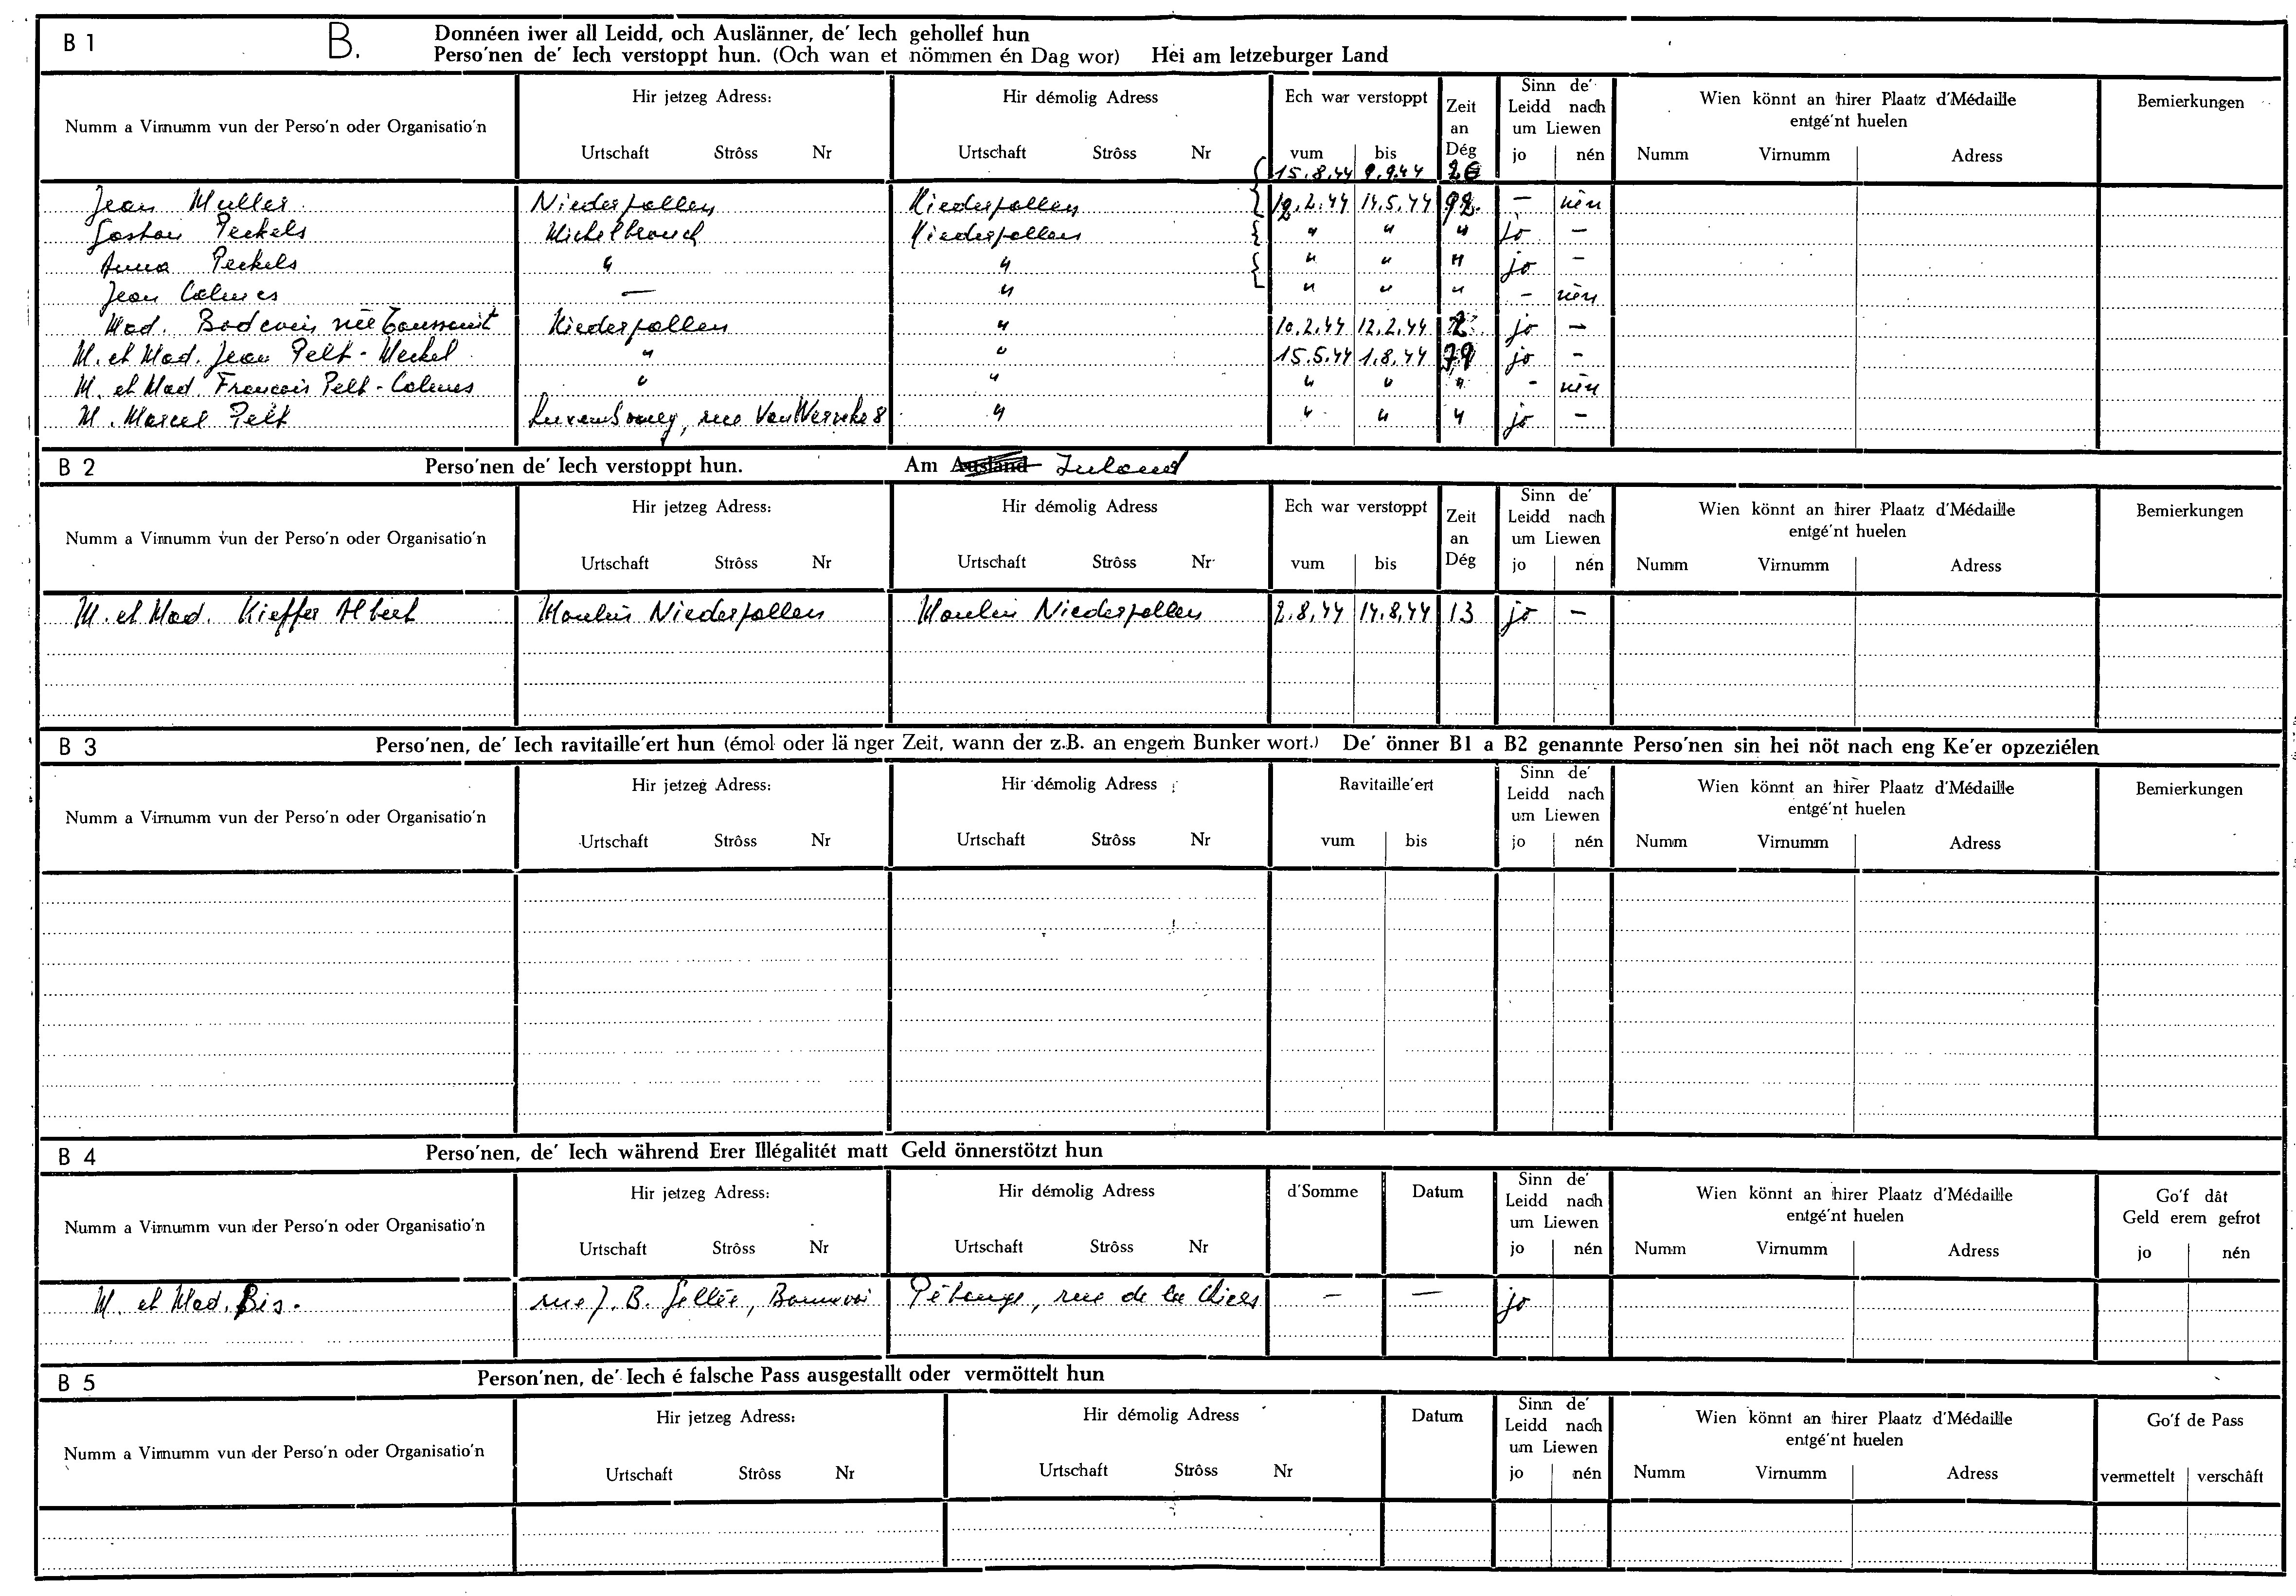 B 1 B. Donnéen iwer all Leidd, och Auslänner, de' Iech gehollef hun
Perso'nen de' Iech verstoppt hun. (Och wan et nömmen én Dag wor) Hei am letzeburger Land
Numm a Virnumm vun der Perso'n oder Organisatio'n
Hir jetzeg Adress:
Urtschaft Strôss Nr
Hir démolig Adress
Urtschaft Strôss Nr
Ech war verstoppt
vum bis
Zeit an Dég
Sinn de' Leidd nach um Liewen
jo nén
Wien könnt an hirer Plaatz d'Médaille entgé'nt huelen
Numm Virnumm Adress
Bemierkungen
15.8.44 9.9.44 26
Jean Muller Niederpallen Niederpallen 12.2.44 14.5.44 92 — nén
Gaston Peckels Michelbouch Niederpallen " " " jo —
Anna Peckels " " " " " jo —
Jean Colmes — " " " " — nén
Mad. Bodevin née Toussaint Niederpallen " 10.2.44 12.2.44 2 jo —
M. et Mad. Jean Pelt - Meckel " " 15.5.44 1.8.44 79 jo —
M. et Mad. Francois Pelt - Colmes " " " " " - nén
M. Marcel Pelt Luxembourg, rue Van Werveke 8 " " " " jo —
B 2 Perso'nen de' Iech verstoppt hun. Am Ausland Inland
Numm a Virnumm vun der Perso'n oder Organisatio'n
Hir jetzeg Adress:
Urtschaft Strôss Nr
Hir démolig Adress
Urtschaft Strôss Nr
Ech war verstoppt
vum bis
Zeit an Dég
Sinn de' Leidd nach um Liewen
jo nén
Wien könnt an hirer Plaatz d'Médaille entgé'nt huelen
Numm Virnumm Adress
Bemierkungen
M. et Mad. Kieffer Albert Moulin Niederpallen Moulin Niederpallen 2.8.44 14.8.44 13 jo —
B 3 Perso'nen, de' Iech ravitaille'ert hun (émol oder länger Zeit, wann der z.B. an engem Bunker wort.) De' önner B1 a B2 genannte Perso'nen sin hei nöt nach eng Ke'er opzeziélen
Numm a Virnumm vun der Perso'n oder Organisatio'n
Hir jetzeg Adress:
Urtschaft Strôss Nr
Hir démolig Adress
Urtschaft Strôss Nr
Ravitaille'ert
vum bis
Sinn de' Leidd nach um Liewen
jo nén
Wien könnt an hirer Plaatz d'Médaille entgé'nt huelen
Numm Virnumm Adress
Bemierkungen
B 4 Perso'nen, de' Iech während Erer Illégalitét matt Geld önnerstötzt hun
Numm a Virnumm vun der Perso'n oder Organisatio'n
Hir jetzeg Adress:
Urtschaft Strôss Nr
Hir démolig Adress
Urtschaft Strôss Nr
d'Somme
Datum
Sinn de' Leidd nach um Liewen
jo nén
Wien könnt an hirer Plaatz d'Médaille entgé'nt huelen
Numm Virnumm Adress
Go'f dât Geld erem gefrot
jo nén
M. et Mad. Bis. rue J. B. Gellée, Bonnevoi Pétange, rue de la Chiers — — jo
B 5 Person'nen, de' Iech é falsche Pass ausgestallt oder vermöttelt hun
Numm a Virnumm vun der Perso'n oder Organisatio'n
Hir jetzeg Adress:
Urtschaft Strôss Nr
Hir démolig Adress
Urtschaft Strôss Nr
Datum
Sinn de' Leidd nach um Liewen
jo nén
Wien könnt an hirer Plaatz d'Médaille entgé'nt huelen
Numm Virnumm Adress
Go'f de Pass
vermettelt verschâft